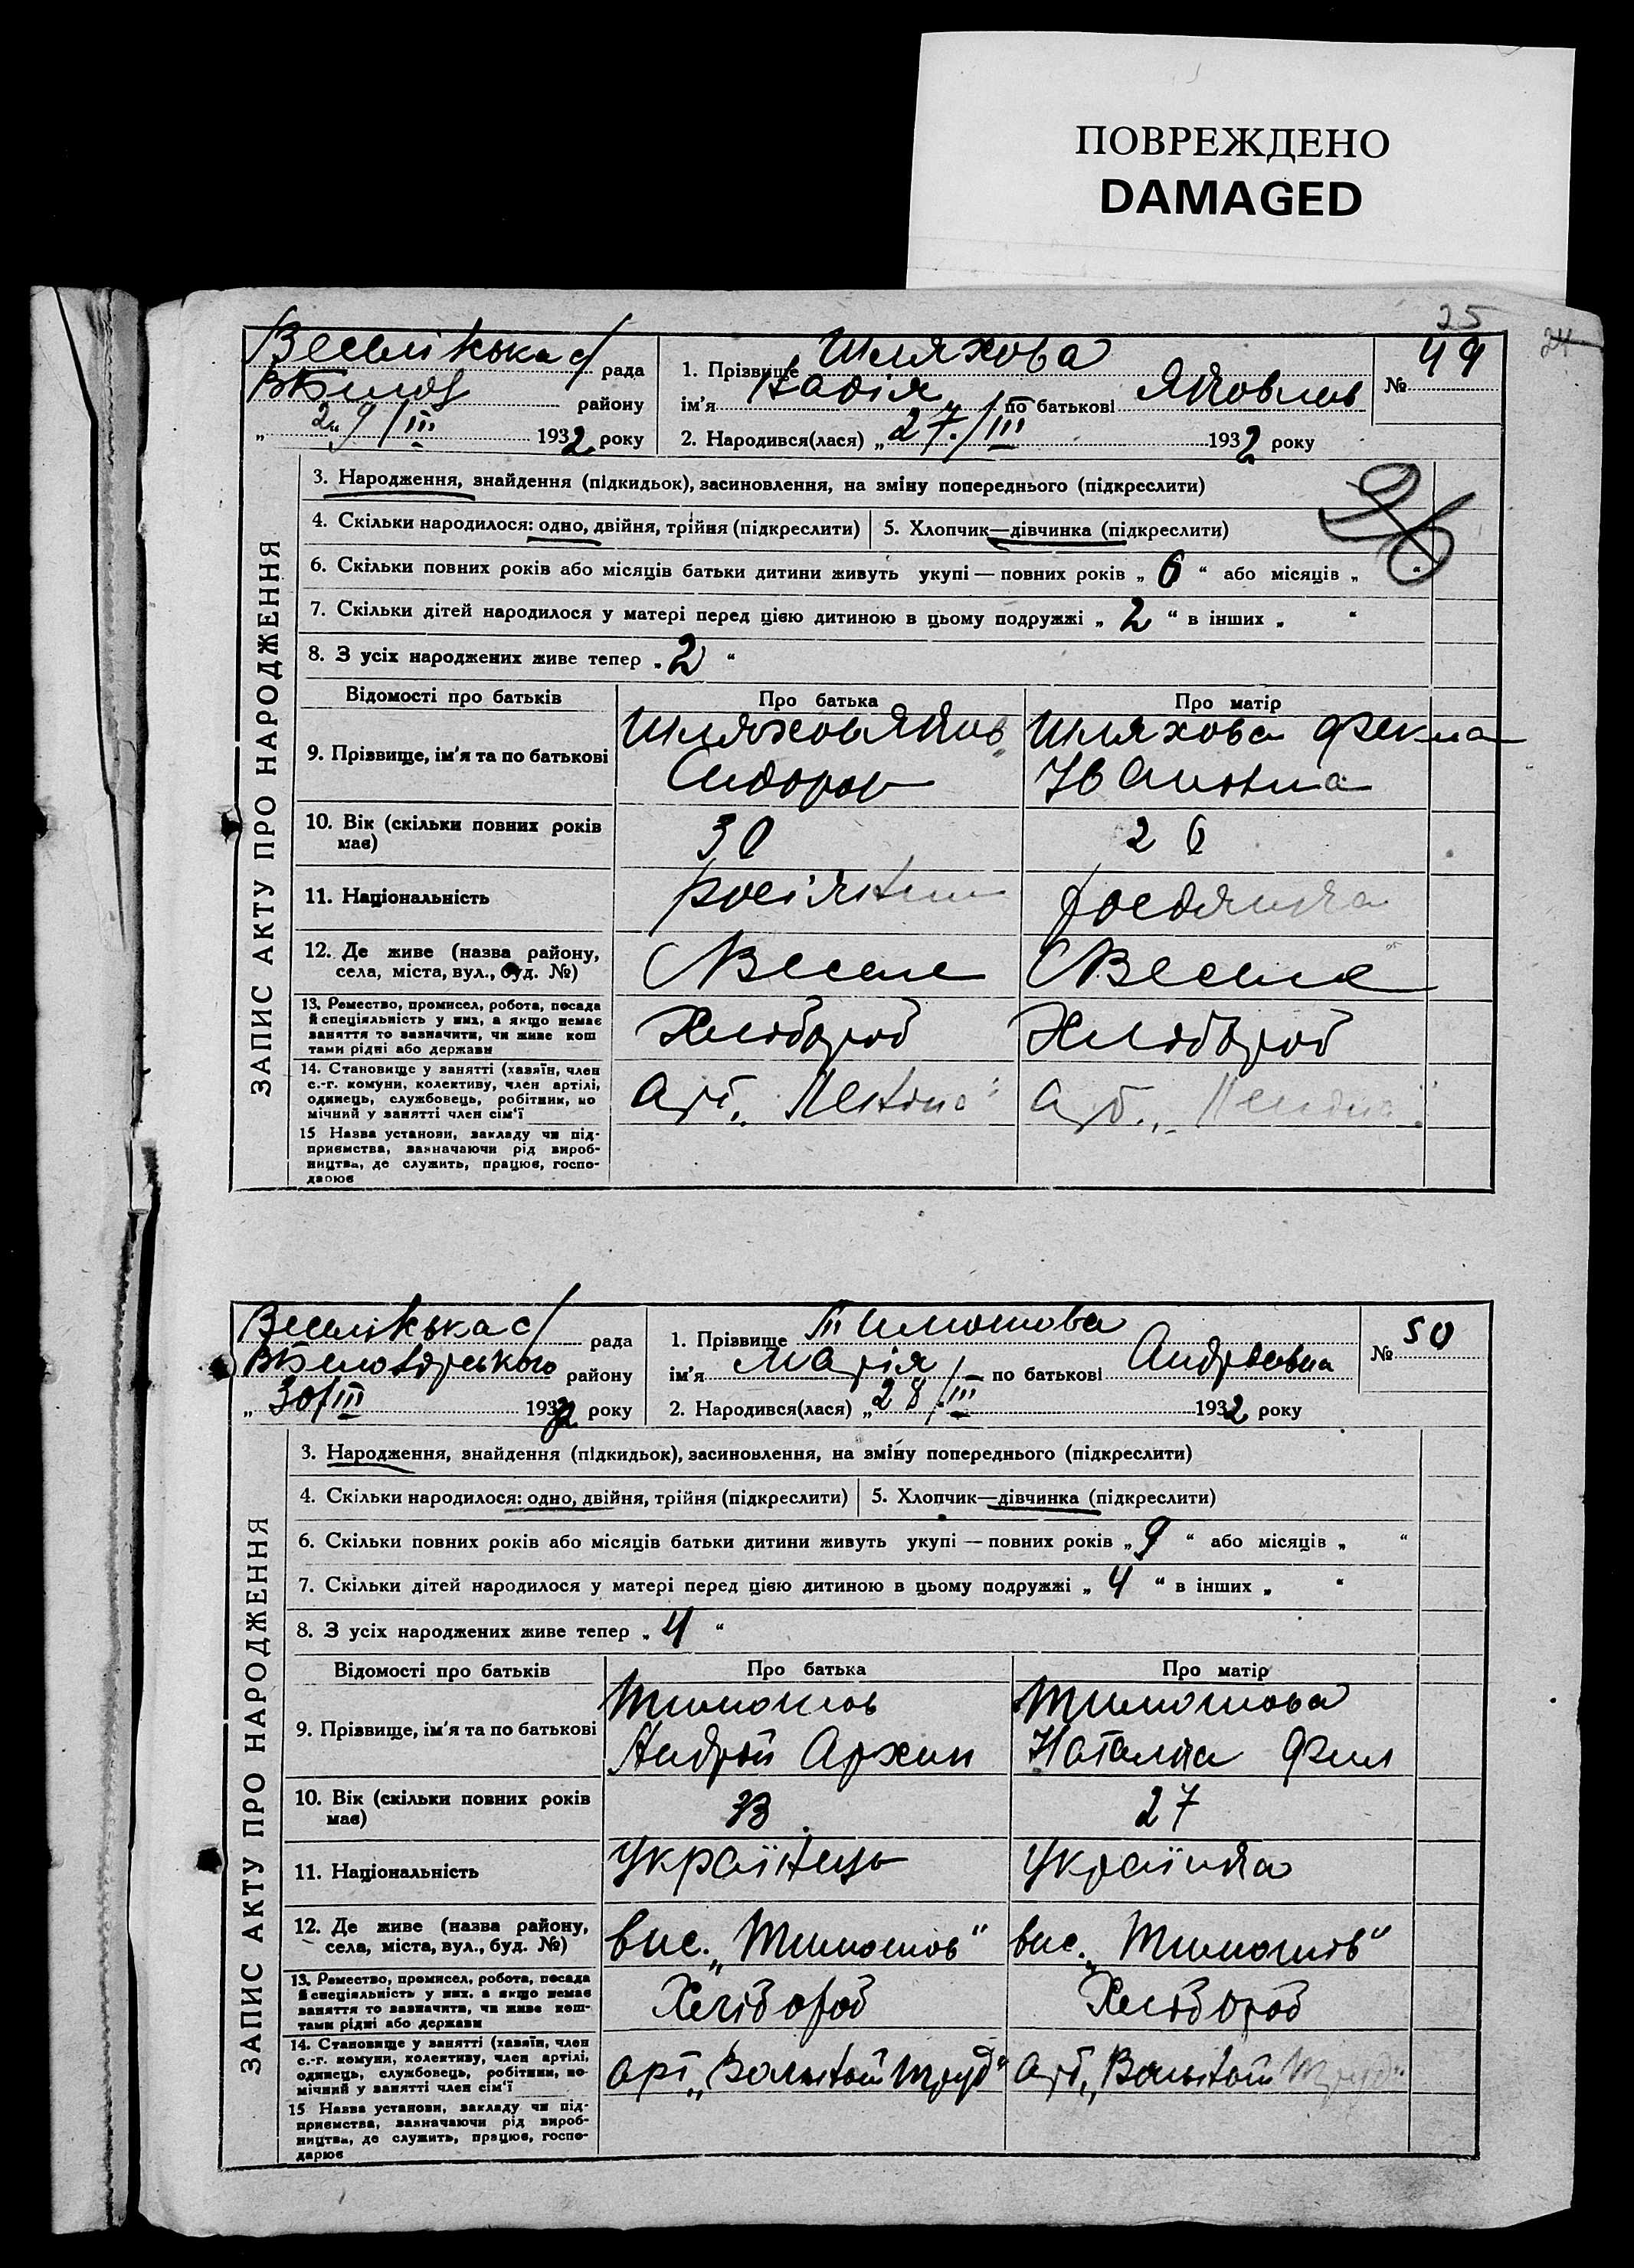 ПОВРЕЖДЕНО
DAMAGED
25
24
Веселівська с/ рада
ВБілоз району
„ 29/III 1932 року
1. Прізвище Шляхова
ім’я Надія по батькові Яковлів
2. Народився(лася) „ 27/III 1932 року
№ 49
26
ЗАПИС АКТУ ПРО НАРОДЖЕННЯ
3. Народження, знайдення (підкидьок), засиновлення, на зміну попереднього (підкреслити)
4. Скільки народилося: одно, двійня, трійня (підкреслити) 5. Хлопчик—дівчинка (підкреслити)
6. Скільки повних років або місяців батьки дитини живуть укупі — повних років „ 6 “ або місяців „ “
7. Скільки дітей народилося у матері перед цією дитиною в цьому подружжі „ 2 “ в інших „ “
8. З усіх народжених живе тепер „ 2 “
Відомості про батьків Про батька Про матір
9. Прізвище, ім’я та по батькові
Шляхов Яков Шляхова Фекла
Сидоров Івановна
10. Вік (скільки повних років має) 30 26
11. Національність росіянин росіянка
12. Де живе (назва району, села, міста, вул., буд. №) с Веселе с Веселе
13. Ремество, промисел, робота, посада
й спеціяльність у них, а якщо немає
заняття то зазначити, чи живе кош
тами рідні або держави
Хлібороб Хлібороб
14. Становище у занятті (хазяїн, член
с.-г. комуни, колективу, член артілі,
одинець, службовець, робітник, по
мічний у занятті член сім’ї
Арт. „Леніна“ Арт. „Леніна“
15 Назва установи, закладу чи під-
приємства, зазначаючи рід вироб-
ництва, де служить, працює, госпо-
дарює
Веселівська с/ рада
району
„ 30/III 1932 року
1. Прізвище Тимошова
ім’я Марія по батькові Андріевна
2. Народився(лася) „ 28/III 1932 року
№ 50
ЗАПИС АКТУ ПРО НАРОДЖЕННЯ
3. Народження, знайдення (підкидьок), засиновлення, на зміну попереднього (підкреслити)
4. Скільки народилося: одно, двійня, трійня (підкреслити) 5. Хлопчик—дівчинка (підкреслити)
6. Скільки повних років або місяців батьки дитини живуть укупі — повних років „ 9 “ або місяців „ “
7. Скільки дітей народилося у матері перед цією дитиною в цьому подружжі „ 4 “ в інших „ “
8. З усіх народжених живе тепер „ 4 “
Відомості про батьків Про батька Про матір
9. Прізвище, ім’я та по батькові
Тимошов Тимошова
Андрій Архип Наталка Фил
10. Вік (скільки повних років має) 33 27
11. Національність Українець Українка
12. Де живе (назва району, села, міста, вул., буд. №) вис. „Тимошов“ вис. „Тимошов“
13. Ремество, промисел, робота, посада
й спеціяльність у них, а якщо немає
заняття то зазначити, чи живе кош-
тами рідні або держави
Хлібороб Хлібороб
14. Становище у занятті (хазяїн, член
с.-г. комуни, колективу, член артілі,
одинець, службовець, робітник, по-
мічний у занятті член сім’ї
арт „Вольной Труд“ арт „Вольной Труд“
15 Назва установи, закладу чи під-
приємства, зазначаючи рід вироб-
ництва, де служить, працює, госпо-
дарює